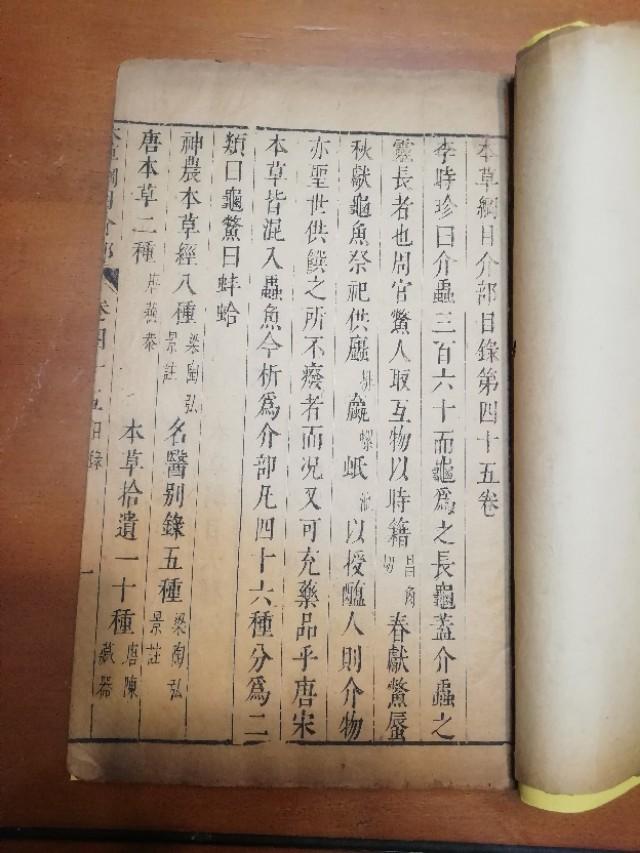 本草綱目介部目錄第四十五卷
李時珍曰介蟲三百六十而龜爲之長龜蓋介蟲之
靈長者也周官鱉人取互物以時籍昌角切春獻鱉蜃
秋獻龜魚祭祀供𧓈排蠃螺蚳池以授醢人則介物
亦聖世供饌之所不廢者而況又可充藥品乎唐宋
本草皆混入蟲魚今析爲介部凡四十六種分爲二
類曰龜鱉曰蚌蛤
神農本草經八種梁陶弘景註 名醫別錄五種梁陶弘景註
唐本草二種唐蘇恭 本草拾遺一十種唐陳藏器
本草綱目介部 卷四十五目錄 一